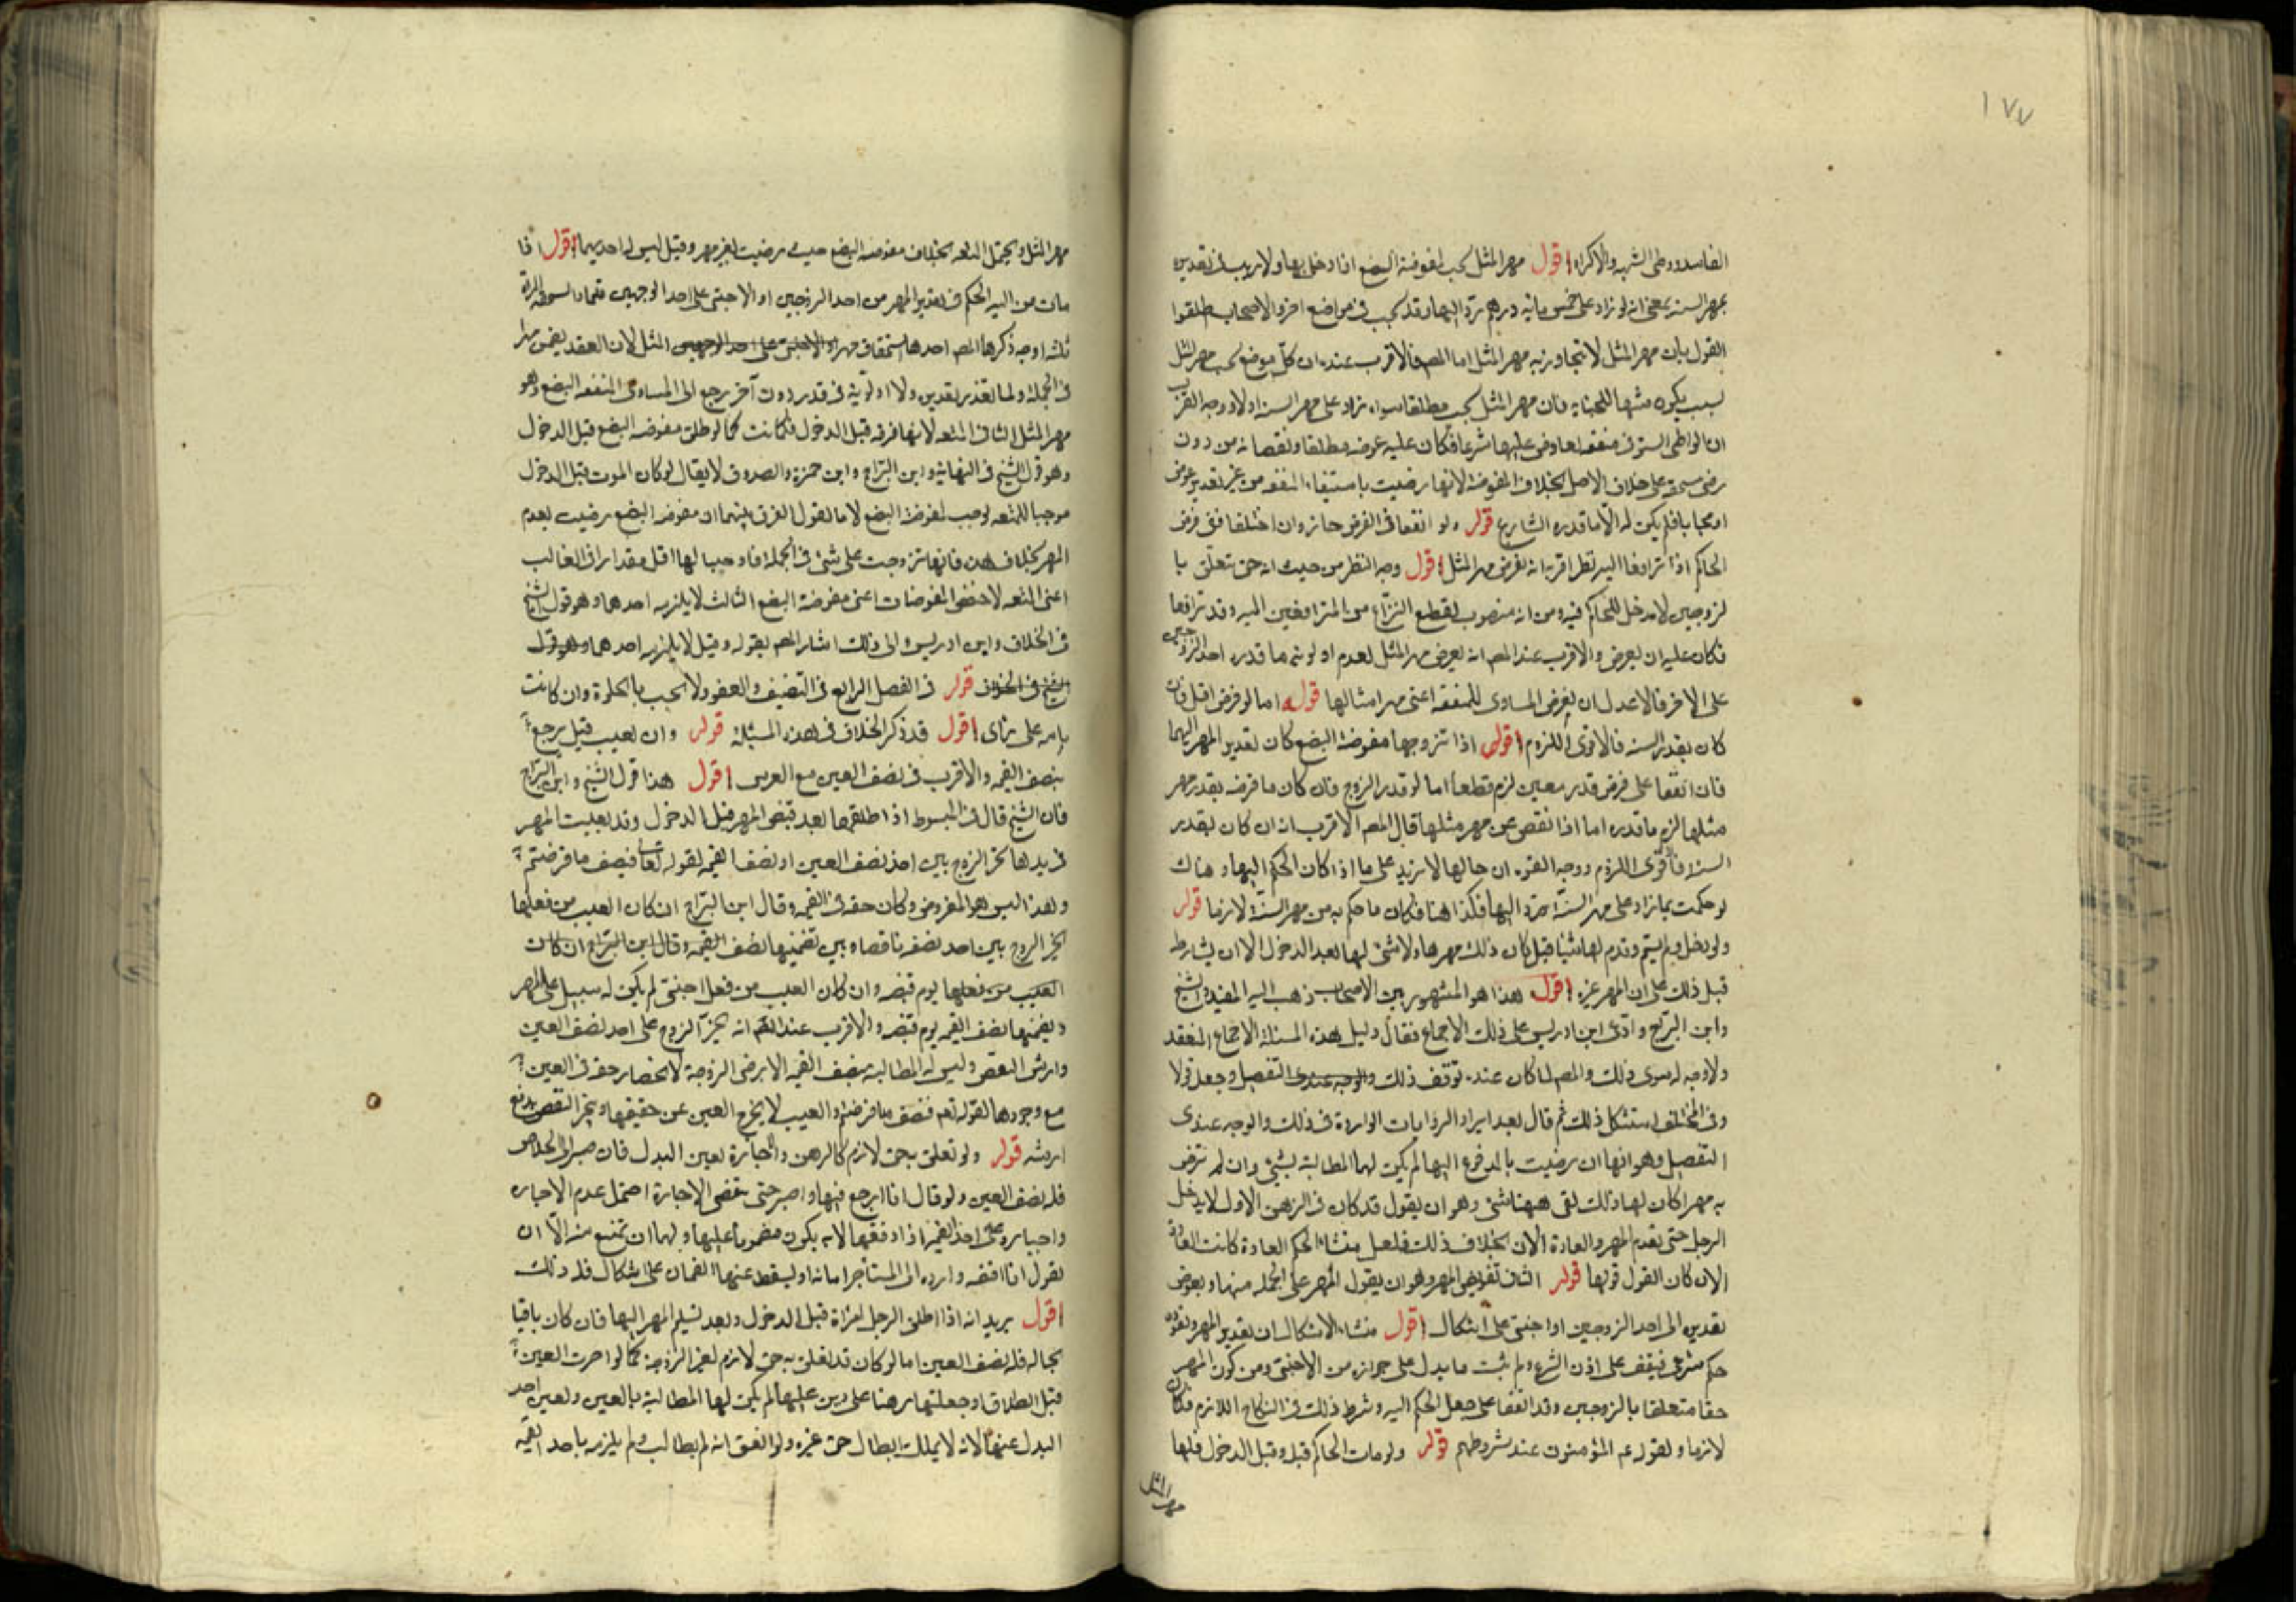 ١٧٧
الفاسد ووطى الشبهه والاكراه اقول مهر المثل يجب لمفوضة البضع اذا دخل بها ولا ريب فى تقديره
بمهر السنه بمعنى انه لو زاد على خمس مائه درهم رد اليها وقد يجب فى مواضع اخر والاصحاب اطلقوا
القول بان مهر المثل لا يتجاوز به مهر المثل اما المصـ فالاقرب عنده ان كل موضع يجب مهر المثل
لسبب يكون مشبها للجنايه فان مهر المثل يجب مطلقا سواء زاد على مهر السنه اولا ووجه القرب
ان الواطى استوفى منفعه لم يعاوض عليها شرعا فكان عليه عوضه مطلقا ونقصانه من دون
رضى مستحقه على خلاف الاصل بخلاف المفوضة لانها رضيت باستيفاء المنفعه من غير تقدير عوض
فلم يكن له الا ما قدره الشارع قوله ولو اتفقا فى الفرض جاز وان اختلفا ففى فرض
الحاكم اذا ترافعا اليه نظر اقربه انه يفرض مهر المثل اقول وجه النظر من حيث انه حق تعلق با
لزوجين لا مدخل للحاكم فيه ومن انه منصوب لقطع النزاع من المترافعين اليه وقد ترافعا
فكان عليه ان يفرض والاقرب عند المصـ انه يفرض مهر المثل لعدم اولويته ما قدره احد الزوجين
على الاخر فالاعدل ان يفرض المساوى للمنفعه اعنى مهر امثالها قوله اما لو فرض اقل فان
كان بقدر السنه فالاقوى اللزوم اقول اذا تزوجها مفوضة البضع كان تقدير المهر اليهما
فان اتفقا على فرض قدر معين لزم قطعا اما لو قدر الزوج فان كان ما فرضه بقدر مهر
مثلها لزم ما قدره اما اذا نقص عن مهر مثلها قال المصـ الاقرب انه ان كان بقدر
السنه فالاقوى اللزوم ووجه القوه ان حالها لا يزيد على ما اذا كان الحكم اليها وهناك
لو حكمت بما زاد على مهر السنه رد اليها فكذا هنا فكان ما حكم به من مهر السنه لازما قوله
ولو دخل ولم يسم وقدم لها شيئا قبل كان ذلك مهرها ولا شئ لها بعد الدخول الا ان يشارط
قبل ذلك على ان المهر غيره اقول هذا هو المشهور بين الاصحاب ذهب اليه المفيد والشيخ
وابن البراج وادعى ابن ادريس على ذلك الاجماع فقال دليل هذه المسئلة الاجماع المنعقد
ولا وجه له سوى ذلك والمصـ لما كان عنده توقف ذلك والوجه عندى التفصيل وجعل قولا
وفى المختلف استشكل ذلك ثم قال بعد ايراد الروايات الوارده فى ذلك والوجه عندى
التفصيل وهو انها ان رضيت بالمدفوع اليها لم يكن لها المطالبة بشئ وان لم ترض
به مهرا كان لها ذلك بقى ههنا شئ وهو ان يقول قد كان فى الزمن الاول لا يدخل
الرجل حتى يقدم المهر والعادة الان بخلاف ذلك فلعل منشاء الحكم العادة كانت العاده
الان كان القول قولها قوله الثانى تفويض المهر وهو ان يقول المهر على الجمله منها ويفوض
تقديره الى احد الزوجين او اجنبى على اشكال اقول منشاء الاشكال ان تقدير المهر وتعوده
حكم شرعى فيقف على اذن الشرع ولم يثبت ما يدل على جوازه من الاجنبى ومن كون المهر
حقا متعلقا بالزوجين وقد اتفقا على جعل الحكم اليه وشرط ذلك فى النكاح اللازم فكان
لازما ولقوله عم المؤمنون عند شروطهم قوله ولو مات الحاكم قبله وقبل الدخول فلها
مهر المثل
مهر المثل ويحتمل المتعه بخلاف مفوضه البضع حيث رضيت بغير مهر وقيل ليس له احديهما اقول اذا
مات من اليه الحكم فى تقدير المهر من احد الزوجين او الاجنبى على احد الوجهين فيما يستحقه المراة
ثلثه اوجه ذكرها المصـ احدها استحقاق مهر او الاجنبى على احد الوجهين المثل لان العقد يضمن مهرا
فى الجملة ولما تعذر تقديره ولا اولويه فى قدر دون آخر يرجع الى المساوى لمنفعه البضع وهو
مهر المثل الثانى المتعه لانها فرقه قبل الدخول فكانت كما لو طلق مفوضه البضع قبل الدخول
وهو قول الشيخ فى النهاية وابن البراج وابن حمزه والصدوق لا يقال لو كان الموت قبل الدخول
موجبا للمتعه لوجب لمفوضة البضع لانا نقول الفرق بينهما ان مفوضه البضع رضيت بعدم
المهر بخلاف هذه فانها تزوجت على شئ فى الجملة فاوجبنا لها اقل مقدار افى الغالب
اعنى المتعه لاخفض المفوضات اعنى مفوضة البضع الثالث لا يلزمه احدهما وهو قول الشيخ
فى الخلاف وابن ادريس والى ذلك اشار المصـ بقوله وقيل لا يلزمه احدهما وهو قول
الشيخ فى الخلاف قوله فى الفصل الرابع فى التنصيف والعفو ولا يجب بالخلوة وان كانت
تامه على رأى اقول قد ذكر الخلاف فى هذه المسئلة قوله وان تعيب قيل يرجع
بنصف القيمه والاقرب فى نصف العين مع العرس اقول هذا قول الشيخ وابن البراج
فان الشيخ قال فى المبسوط اذا طلقها بعد قبض المهر قبل الدخول وقد تعيب المهر
فى يدها تخير الزوج بين اخذ نصف العين او نصف القيمه لقوله تعالى فنصف ما فرضتم
وهذا ليس هو المفروض وكان حقه فى القيمه وقال ابن البراج ان كان العيب من فعلها
تخير الزوج بين اخذ نصفه ناقصا وبين تضمينها نصف القيمه وقال ابن البراج ان كان
العيب من فعلها يوم قبضه وان كان العيب من فعل اجنبى لم يكن له سبيل على المهر
ويضمنها نصف القيمه يوم قبضه والاقرب عند المصـ انه يجبر الزوج على اخذ نصف العين
وارش النقص وليس له المطالبة بنصف القيمه الا برضى الزوجة لانحصار حقه فى العين
مع وجودها لقوله تعم فنصف ما فرضتم والعيب لا يخرج العين عن حقيقتها ويجبر النقص بدفع
ارشه قوله ولو تعلق به حق لازم كالرهن والاجارة تعين البدل فان صبر الى الخلاص
فله نصف العين ولو قال انا ارجع فيها واصبر حتى تنقضى الاجارة احتمل عدم الاجباره
واجباره على اخذ القيمه اذا دفعها لانه يكون مضمونا عليها ولها ان تمتنع منه الا ان
يقول انا اقبضه وارده الى المستاجر امانة او يسقط عنها الضمان على اشكال فله ذلك
اقول يريد انه اذا طلق الرجل امراة قبل الدخول وبعد تسليم المهر اليها فان كان باقيا
بحاله فله نصف العين اما لو كان قد تعلق به حق لازم لغير الزوجة كما لو اجرت العين
قبل الطلاق او جعلتها رهنا على دين عليها لم يكن لها المطالبة بالعين وتعين اخذ
البدل عنها لانه لا يملك ابطال حق غيره ولو اتفق انه لم يطالب ولم يلزمه باخذ القيمه